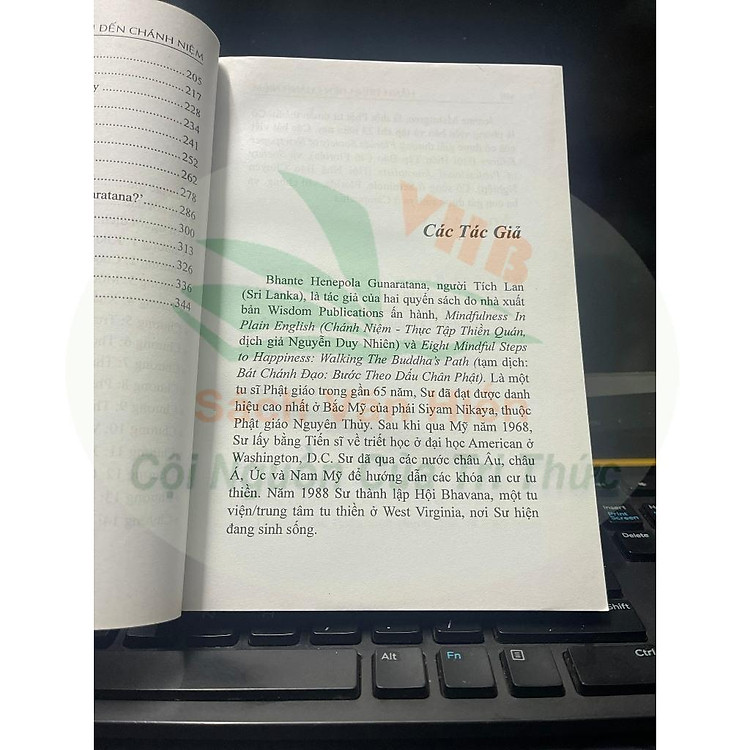 ĐẾN CHÁNH NIỆM
205
217
228
234
241
252
262
278
aratana?'
286
300
313
326
336
344
Các Tác Giả
Bhante Henepola Gunaratana, người Tích Lan
(Sri Lanka), là tác giả của hai quyển sách do nhà xuất
bản Wisdom Publications ấn hành, Mindfulness In
Plain English (Chánh Niệm - Thực Tập Thiền Quán,
dịch giả Nguyễn Duy Nhiên) và Eight Mindful Steps
to Happiness: Walking The Buddha's Path (tạm dịch:
Bát Chánh Đạo: Bước Theo Dấu Chân Phật). Là một
tu sĩ Phật giáo trong gần 65 năm, Sư đã đạt được danh
hiệu cao nhất ở Bắc Mỹ của phái Siyam Nikaya, thuộc
Phật giáo Nguyên Thủy. Sau khi qua Mỹ năm 1968,
Sư lấy bằng Tiến sĩ về triết học ở đại học American ở
Washington, D.C. Sư đã qua các nước châu Âu, châu
Á, Úc và Nam Mỹ để hướng dẫn các khóa an cư tu
thiền. Năm 1988 Sư thành lập Hội Bhavana, một tu
viện/trung tâm tu thiền ở West Virginia, nơi Sư hiện
đang sinh sống.
VHB
Cội Nguồn Của Tri Thức
Insert
Print
Screen
Delete
Shift
Alt
Fn
Ctrl